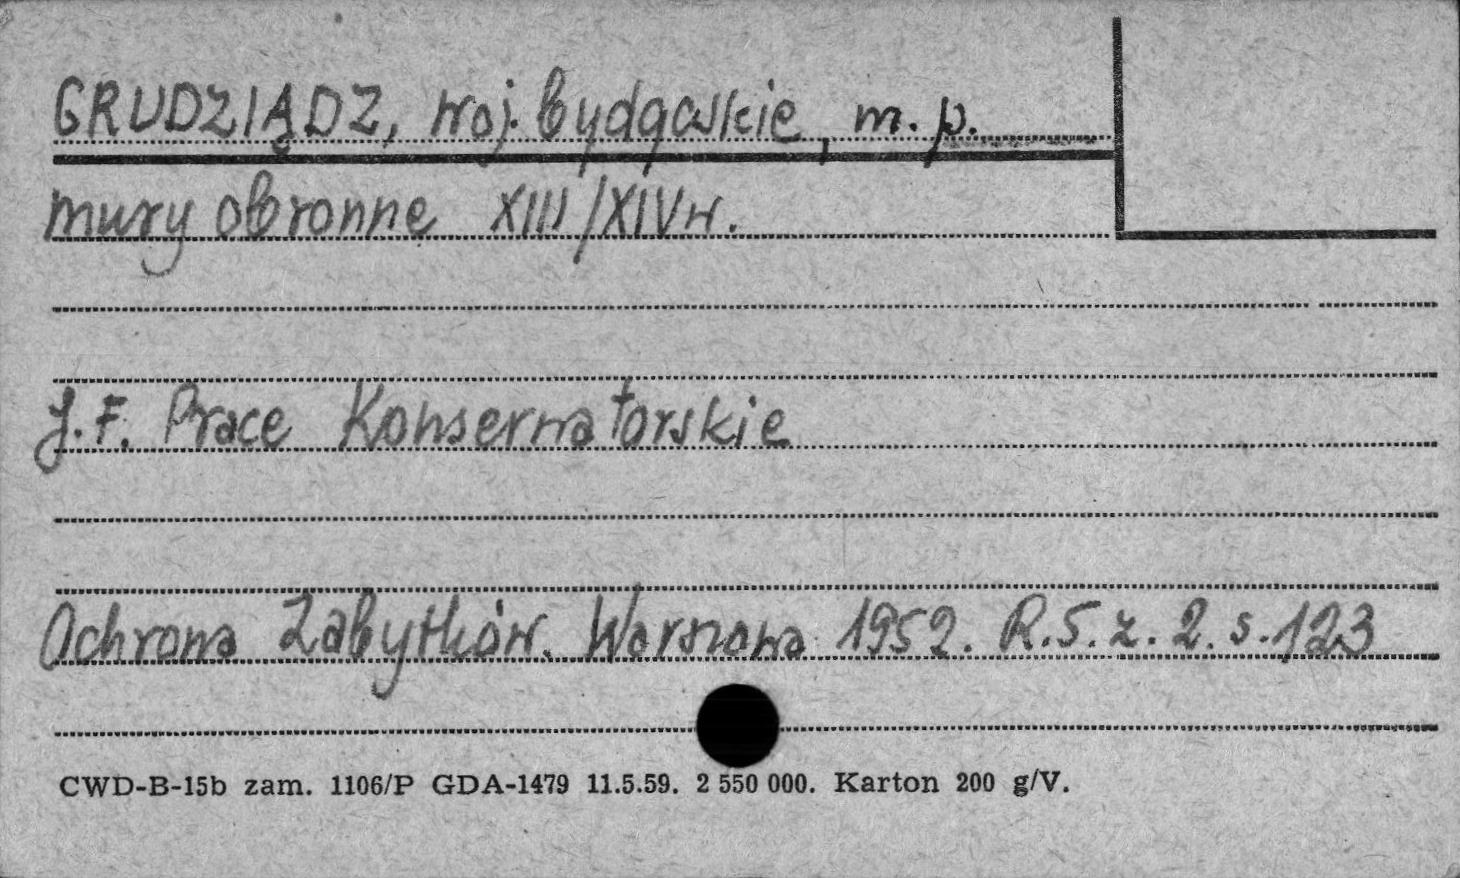 GRUDZIĄDZ, woj. bydgoskie, m. p.
mury obronne XIII/XIV w.
J. F. Prace Konserwatorskie
Ochrona Zabytków. Warszawa 1952. R. 5. z. 2. s. 123
CWD-B-15b zam. 1106/P GDA-1479 11.5.59. 2 550 000. Karton 200 g/V.